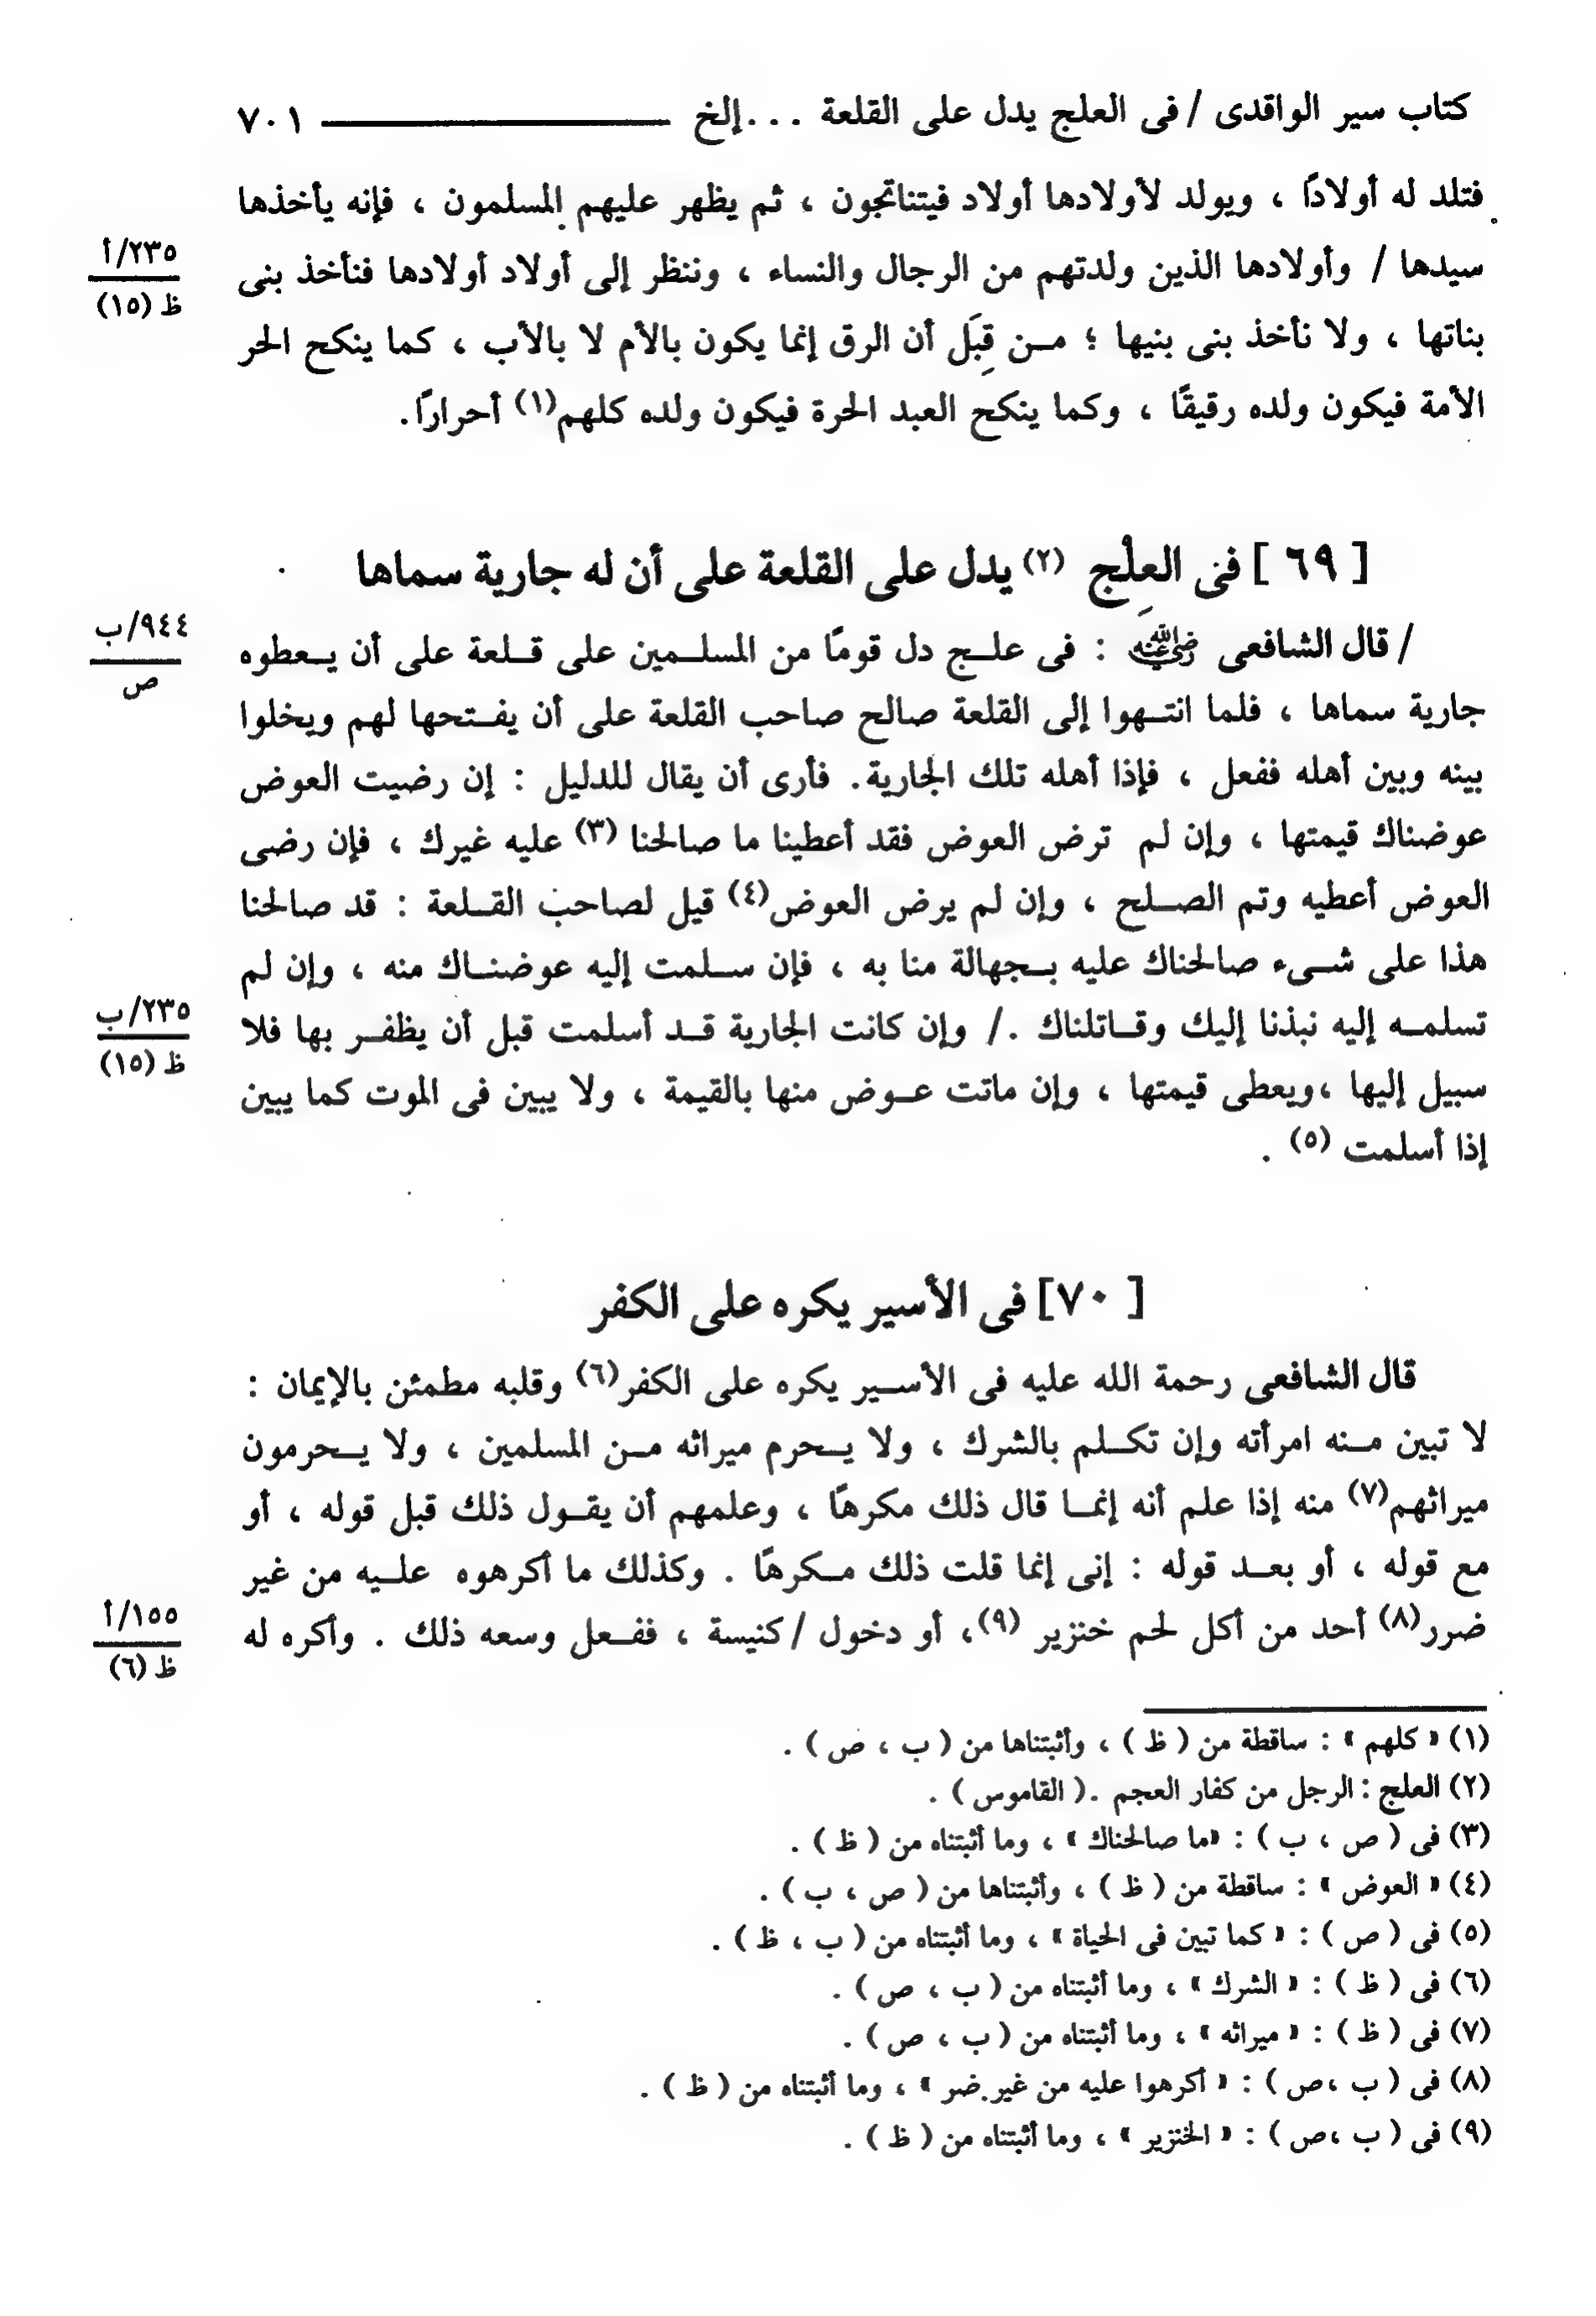 كتاب سير الواقدى / فى العلج يدل على القلعة . . . إلخ ٧٠١
فتلد له أولادًا ، ويولد لأولادها أولاد فيتناتجون ، ثم يظهر عليهم المسلمون ، فإنه يأخذها
سيدها / وأولادها الذين ولدتهم من الرجال والنساء ، وننظر إلى أولاد أولادها فنأخذ بنى
٢٣٥/أ
ظ (١٥)
بناتها ، ولا نأخذ بنى بنيها ؛ من قِبَلِ أن الرق إنما يكون بالأم لا بالأب ، كما ينكح الحر
الأمة فيكون ولده رقيقًا ، وكما ينكح العبد الحرة فيكون ولده كلهم(١) أحرارًا.
[ ٦٩ ] فى العِلْجِ (٢) يدل على القلعة على أن له جارية سماها
/ قال الشافعى رضي الله عنه : فى علج دل قومًا من المسلمين على قلعة على أن يعطوه
٩٤٤/ب
ص
جارية سماها ، فلما انتهوا إلى القلعة صالح صاحب القلعة على أن يفتحها لهم ويخلوا
بينه وبين أهله ففعل ، فإذا أهله تلك الجارية. فأرى أن يقال للدليل : إن رضيت العوض
عوضناك قيمتها ، وإن لم ترض العوض فقد أعطينا ما صالحنا (٣) عليه غيرك ، فإن رضى
العوض أعطيه وتم الصلح ، وإن لم يرض العوض(٤) قيل لصاحب القلعة : قد صالحنا
هذا على شىء صالحناك عليه بجهالة منا به ، فإن سلمت إليه عوضناك منه ، وإن لم
تسلمه إليه نبذنا إليك وقاتلناك ./ وإن كانت الجارية قد أسلمت قبل أن يظفر بها فلا
٢٣٥/ب
ظ (١٥)
سبيل إليها ،ويعطى قيمتها ، وإن ماتت عوض منها بالقيمة ، ولا يبين فى الموت كما يبين
إذا أسلمت (٥) .
[ ٧٠] فى الأسير يكره على الكفر
قال الشافعى رحمة الله عليه فى الأسير يكره على الكفر(٦) وقلبه مطمئن بالإيمان :
لا تبين منه امرأته وإن تكلم بالشرك ، ولا يحرم ميراثه من المسلمين ، ولا يحرمون
ميراثهم(٧) منه إذا علم أنه إنما قال ذلك مكرهًا ، وعلمهم أن يقول ذلك قبل قوله ، أو
مع قوله ، أو بعد قوله : إنى إنما قلت ذلك مكرهًا . وكذلك ما أكرهوه عليه من غير
ضرر(٨) أحد من أكل لحم خنزير (٩)، أو دخول / كنيسة ، ففعل وسعه ذلك . وأكره له
١٥٥/أ
ظ (٦)
(١) « كلهم » : ساقطة من ( ظ ) ، وأثبتناها من ( ب ، ص ) .
(٢) العلج : الرجل من كفار العجم . ( القاموس ) .
(٣) فى ( ص ، ب ) : «ما صالحناك » ، وما أثبتناه من ( ظ ) .
(٤) « العوض » : ساقطة من ( ظ ) ، وأثبتناها من ( ص ، ب ) .
(٥) فى ( ص ) : « كما تبين فى الحياة » ، وما أثبتناه من ( ب ، ظ ) .
(٦) فى ( ظ ) : « الشرك » ، وما أثبتناه من ( ب ، ص ) .
(٧) فى ( ظ ) : « ميراثه » ، وما أثبتناه من ( ب ، ص ) .
(٨) فى ( ب ،ص ) : « أكرهوا عليه من غير ضر » ، وما أثبتناه من ( ظ ) .
(٩) فى ( ب ،ص ) : « الخنزير » ، وما أثبتناه من ( ظ ) .